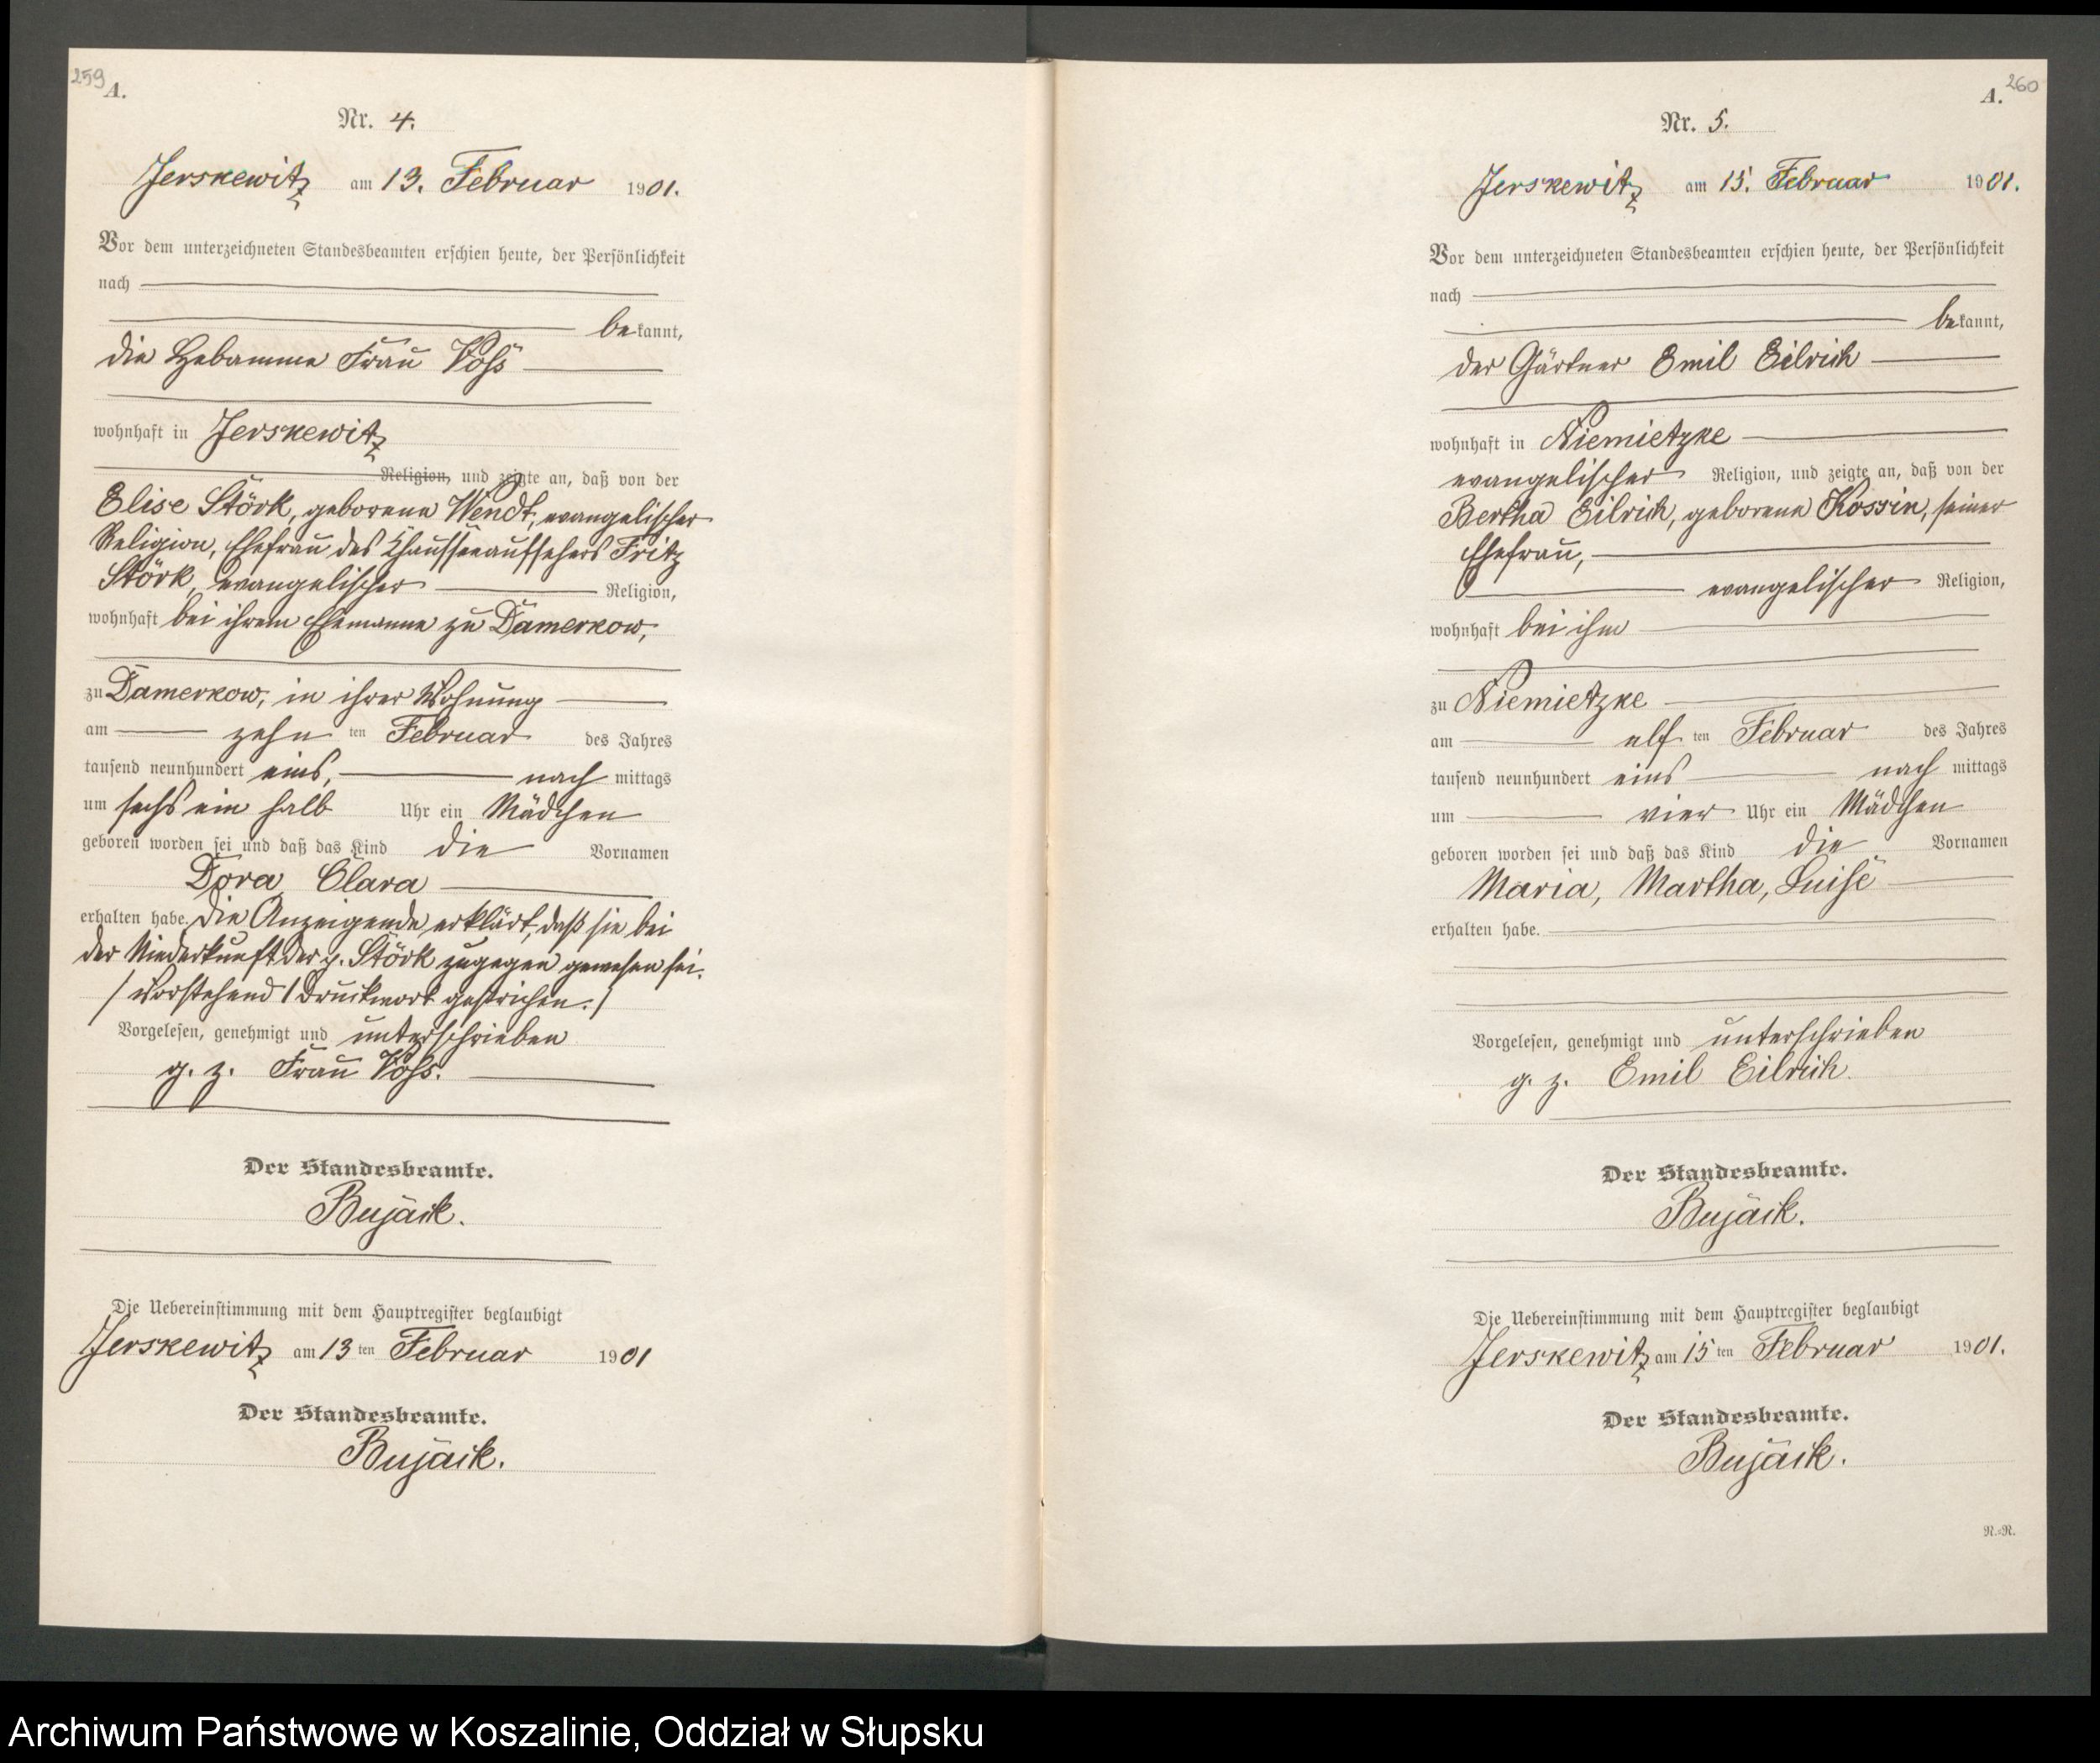 259
A.
Nr. 4.
Jerskewitz am 13. Februar 1901.
Vor dem unterzeichneten Standesbeamten erschien heute, der Persönlichkeit
nach
bekannt,
die Hebamme Frau Voß
wohnhaft in Jerskewitz
Religion, und zeigte an, daß von der
Elise Störk, geborene Wendt, evangelischer
Religion, Ehefrau des Chausseeaufsehers Fritz
Störk, evangelischer Religion,
wohnhaft bei ihrem Ehemanne zu Damerkow,
zu Damerkow, in ihrer Wohnung
am zehn ten Februar des Jahres
tausend neunhundert eins, nach mittags
um sechs ein halb Uhr ein Mädchen
geboren worden sei und daß das Kind die Vornamen
Dora Clara
erhalten habe. Die Anzeigende erklärt, daß sie bei
der Niederkunft der p. Störk zugegen gewesen sei.
/Vorstehend 1 Druckwort gestrichen./
Vorgelesen, genehmigt und unterschrieben
g. z. Frau Voß.
Der Standesbeamte.
Bujäck.
Die Uebereinstimmung mit dem Hauptregister beglaubigt
Jerskewitz am 13 ten Februar 1901
Der Standesbeamte.
Bujäck.
260
A.
Nr. 5.
Jerskewitz am 15. Februar 1901.
Vor dem unterzeichneten Standesbeamten erschien heute, der Persönlichkeit
nach
bekannt,
der Gärtner Emil Eilrich
wohnhaft in Niemietzke
evangelischer Religion, und zeigte an, daß von der
Bertha Eilrich, geborene Kossin, seiner
Ehefrau,
evangelischer Religion,
wohnhaft bei ihm
zu Niemietzke
am elf ten Februar des Jahres
tausend neunhundert eins nach mittags
um vier Uhr ein Mädchen
geboren worden sei und daß das Kind die Vornamen
Maria, Martha, Luise
erhalten habe.
Vorgelesen, genehmigt und unterschrieben
g. z. Emil Eilrich.
Der Standesbeamte.
Bujäck.
Die Uebereinstimmung mit dem Hauptregister beglaubigt
Jerskewitz am 15 ten Februar 1901.
Der Standesbeamte.
Bujäck.
N.-N.
Archiwum Państwowe w Koszalinie, Oddział w Słupsku